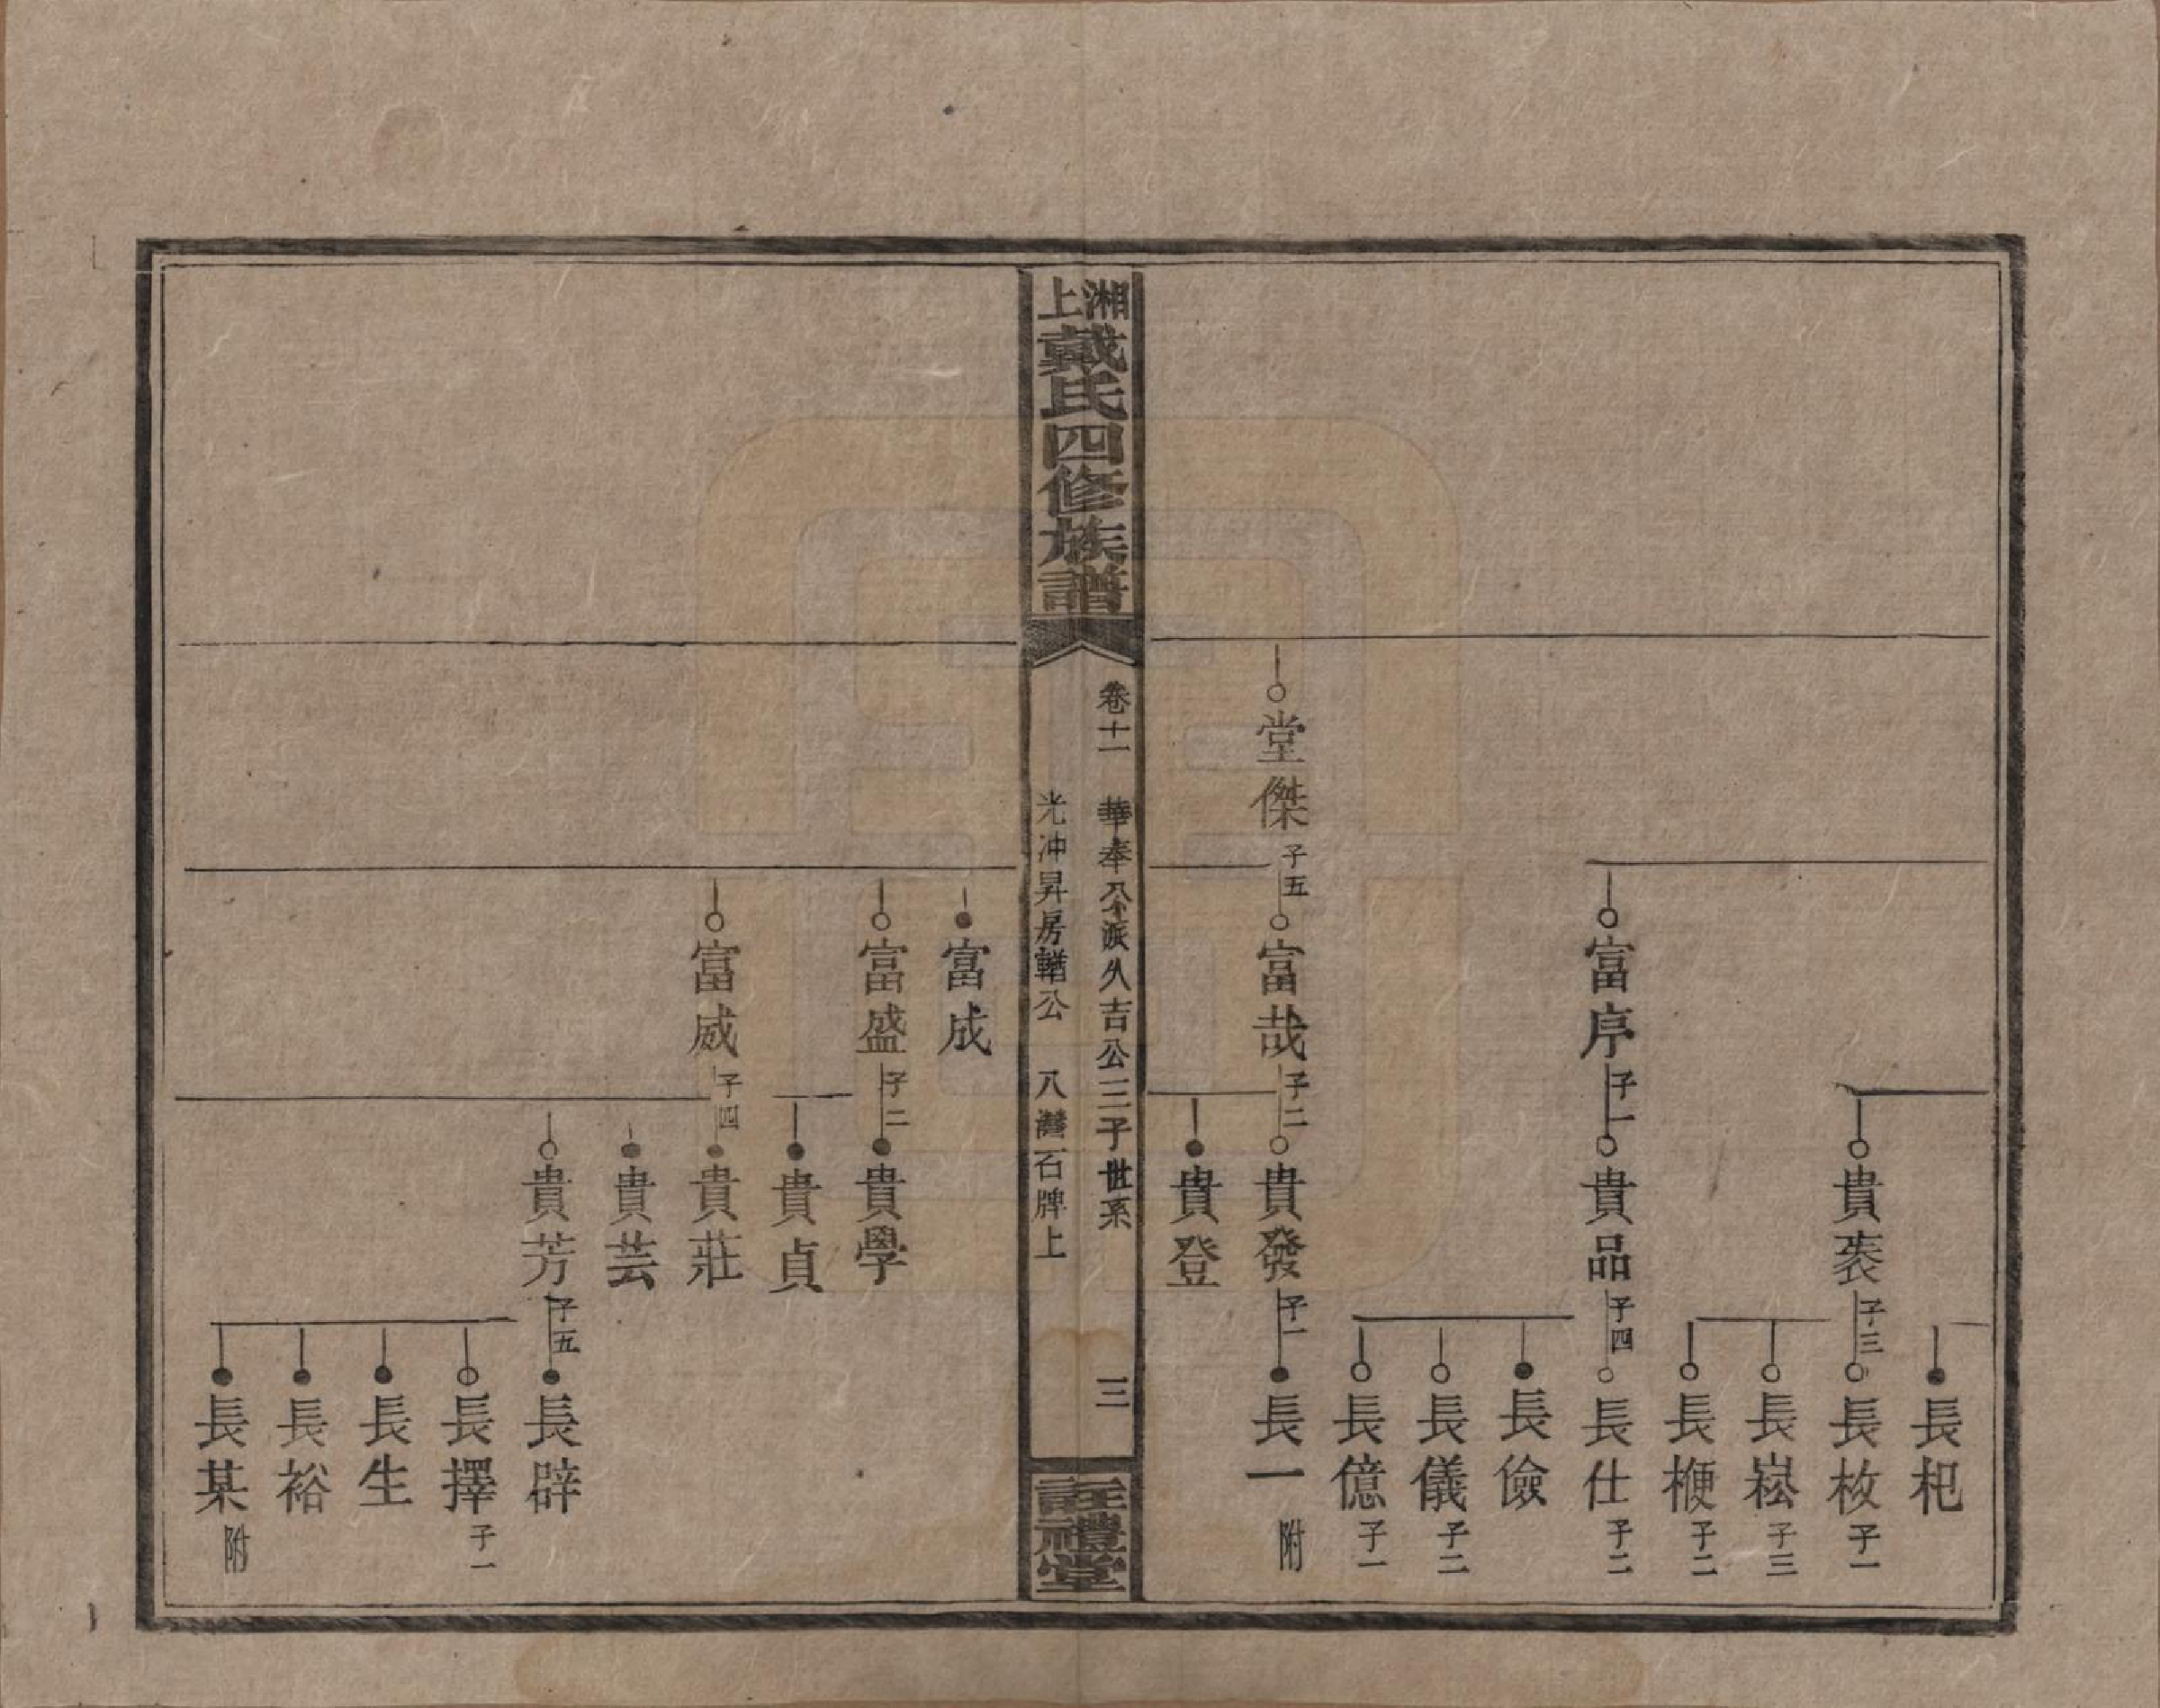 長杞
貴裘 子三
長枚 子一
長崧 子三
長楩 子二
富序 子一
貴品 子四
長仕 子二
長儉
長儀 子二
長億 子一
堂傑 子五
富哉 子二
貴發 子一
長一 附
貴登
湘上戴氏四修族譜
卷十一 華奉公派久吉公三子世系
光冲昇房輶公 八灣石牌上
三
註禮堂
富成
富盛 子二
貴學
貴貞
富威 子四
貴莊
貴芸
貴芳 子五
長辟
長擇 子一
長生
長裕
長某 附